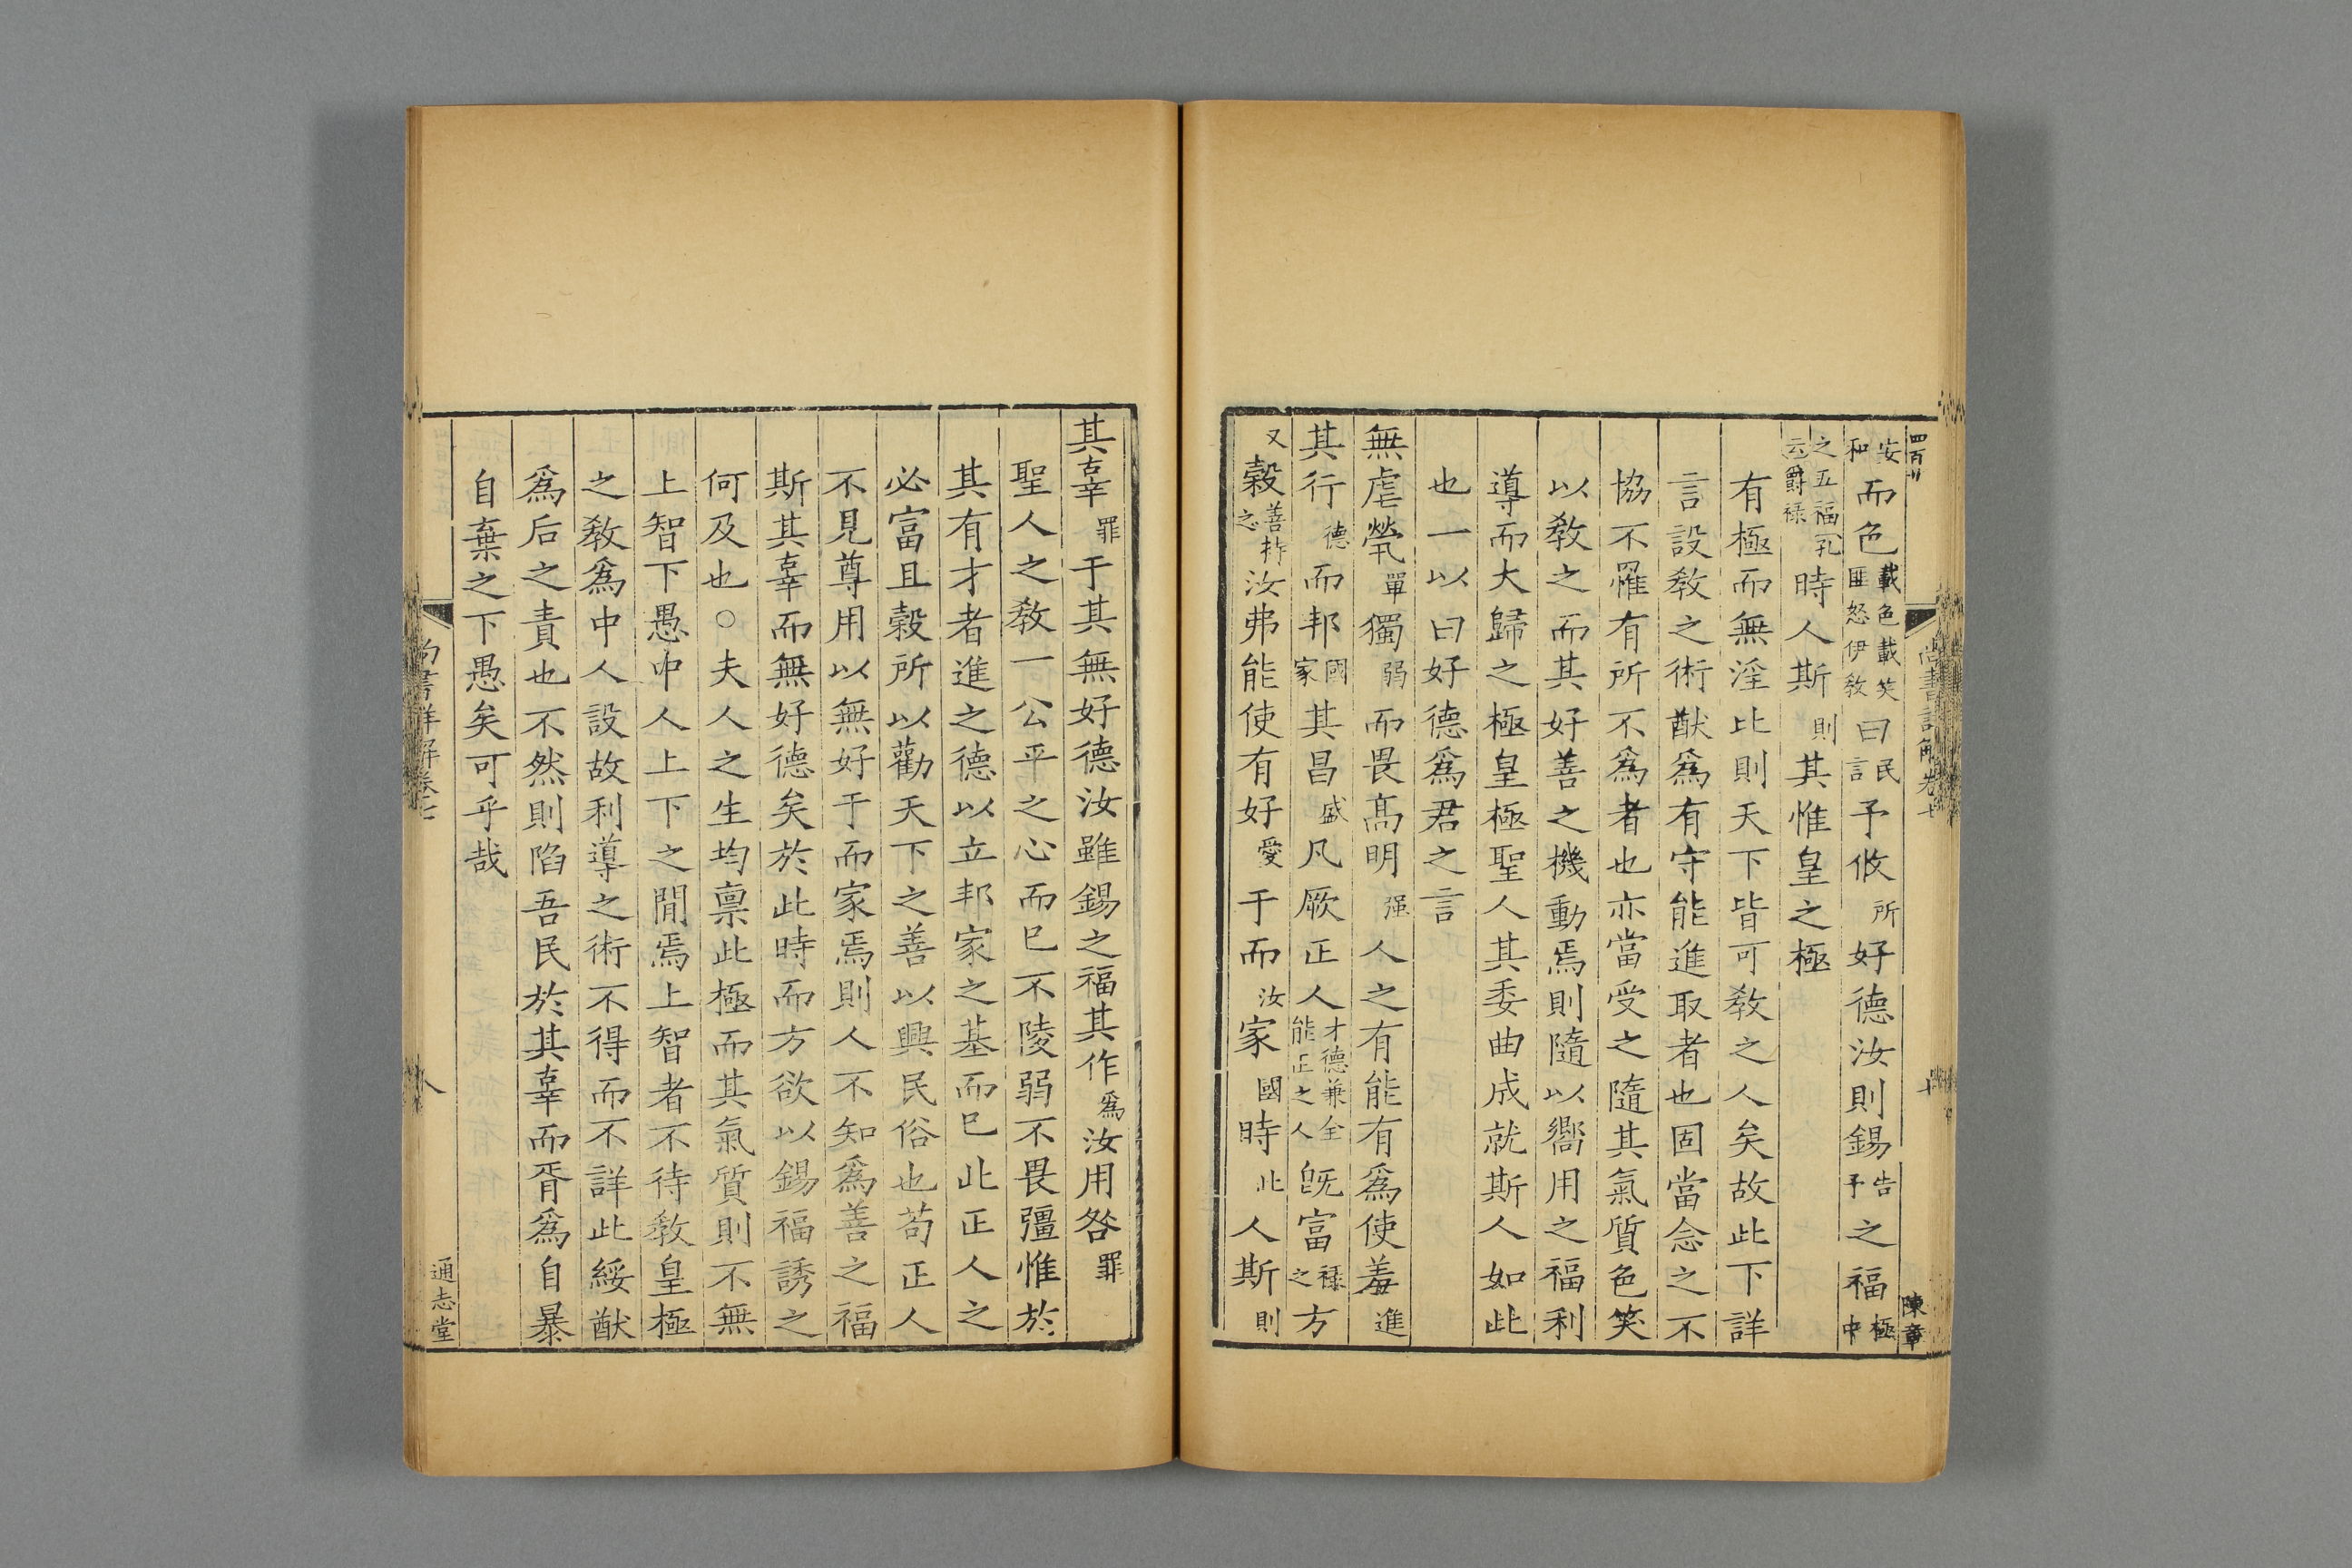 四百卅
尚書詳解卷七
陳章
安和而色載色載笑匪怒伊教曰民言予攸所好德汝則錫告予之福極中
之五福孔云爵祿時人斯則其惟皇之極
有極而無淫比則天下皆可教之人矣故此下詳
言設教之術猷爲有守能進取者也固當念之不
協不罹有所不爲者也亦當受之隨其氣質色笑
以教之而其好善之機動焉則隨以嚮用之福利
導而大歸之極皇極聖人其委曲成就斯人如此
也一以曰好德爲君之言
無虐煢單獨弱而畏高明强人之有能有爲使羞進
其行德而邦國家其昌盛凡厥正人才德兼全能正之人旣富祿之方
又穀善之汝弗能使有好愛于而汝家國時此人斯則
其辜罪于其無好德汝雖錫之福其作爲汝用咎罪
聖人之教一公平之心而已不陵弱不畏彊惟於
其有才者進之德以立邦家之基而已此正人之
必富且穀所以勸天下之善以興民俗也苟正人
不見尊用以無好于而家焉則人不知爲善之福
斯其辜而無好德矣於此時而方欲以錫福誘之
何及也○夫人之生均禀此極而其氣質則不無
上智下愚中人上下之閒焉上智者不待教皇極
之教爲中人設故利導之術不得而不詳此綏猷
爲后之責也不然則陷吾民於其辜而胥爲自暴
自棄之下愚矣可乎哉
尚書詳解卷七
八
通志堂